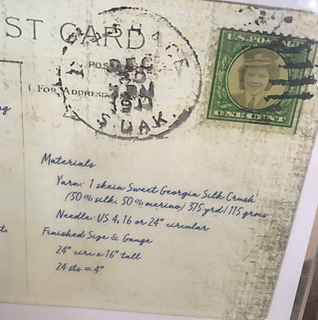 ST CARD
POS
( FOR ADDRESS
DEC
30
S.DAK.
U.S. POSTAGE
ONE CENT
Materials
Yarn: 1 skein Sweet Georgia Silk Crush
(50% silk, 50% merino) 375 yrd/115 grms
Needle: US 4, 16 or 24" circular
Finished Size & Gauge
24" circ x 16" tall
24 sts = 4"